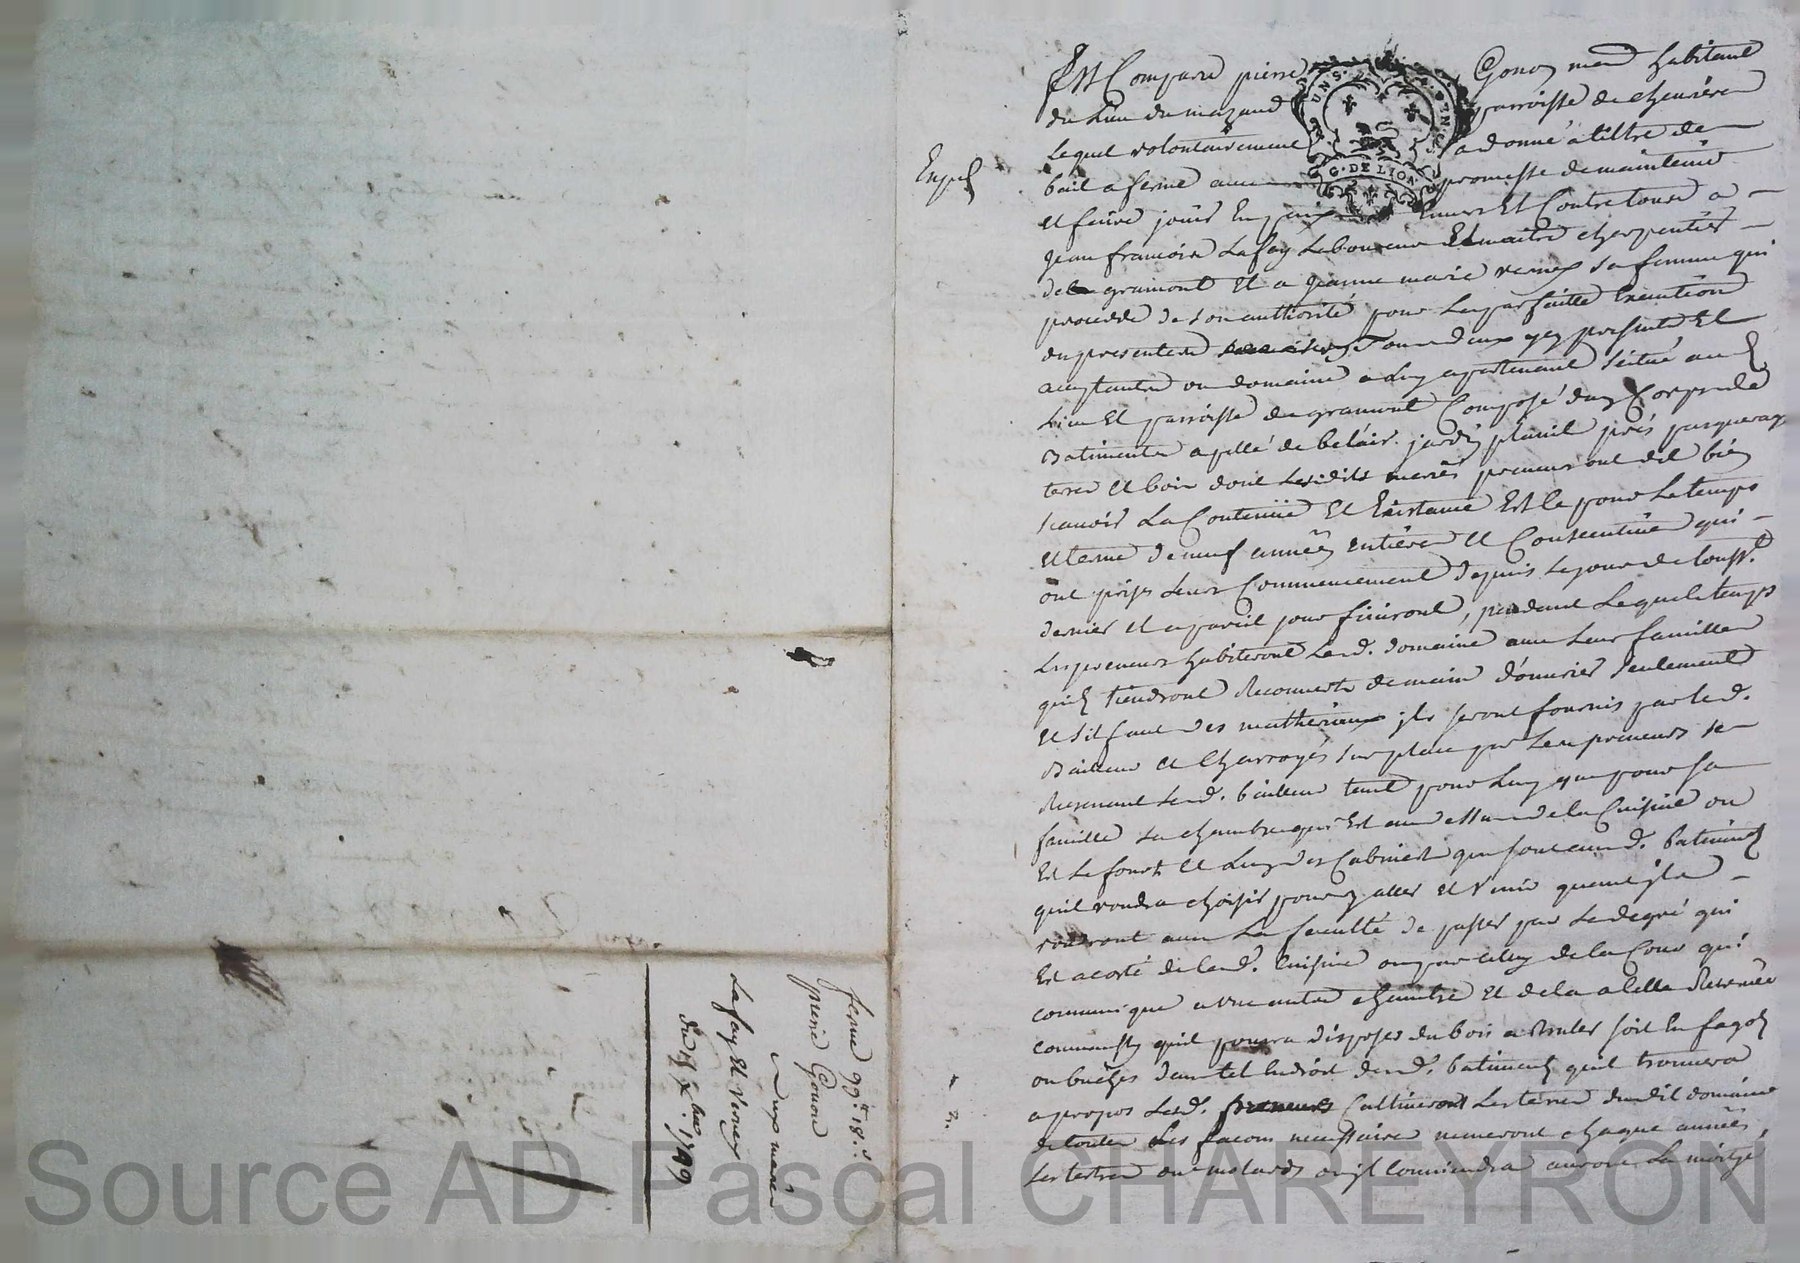 Est Comparu pierre Gonon md habitant
du Lieu du mazaud parroisse de chevrieres
Lequel volontairement a donné a tiltre de
Exped
bail a ferme avec promesse de maintenir
et faire jouir En paix Envers Et Contre tous a
jean francois Lafay Laboureur Et maitre charpentier
de gramont Et a jeanne marie sa femme qui
procede de son authorité pour La parfaitte Execution
du presentes tous deux ycy presents Et
acceptants un domaine a Luy apartenant scitué aud
Lieu Et parroisse de gramont Composé dun Corps de
Batiments apellé de belair. jardin prés pasquerage
terres Et bois dont Lesdits mariés preneurs ont dit bien
scavoir La Contenüe Et Existance Et le pour Le temps
et terme de neuf années entières Et Consecutive qui
ont pris Leurs Commencement depuis Le jour de touss.t
dernier et a pareil jour finiront, pendant Lequel temps
Les preneurs habiteront Led. domaine avec Leur famille
quils tiendront Recouverts de main d'ouvrier seulement
Et sil faut des mathériaux jls seront fournis par le d.
Bailleur Et Charroyés sur place par Les preneurs se
Reservant Led. bailleur tant pour Luy que pour sa
famille La chambre qui Est audessus de la Cuisine ou
Est Le fourt Et Lun des Cabinest qui sont aud. batiment
quil voudra choisir pour y aller Et venir quand jls
voudront avec La faculté de passer par Le degré qui
Est a costé de lad. Cuisine ou par celuy de la Cour qui
communique a une autre chambre Et de la a celle Reservée
quil pourra disposer du bois a Bruler soit En fagots
ou buches dans tel Endroit desd. batiments quil trouvera
a propos Lesd. preneurs Cultiveront Les terres dudit domaine
de toutes Les facons necessaires chaque années
Les terres ou jl conviendra La moitié
ferme 99.tt 18.s
pierre Gonon
aux mariés
Lafay Et
du xbre 1789
G. DE LION
Source AD Pascal CHAREYRON